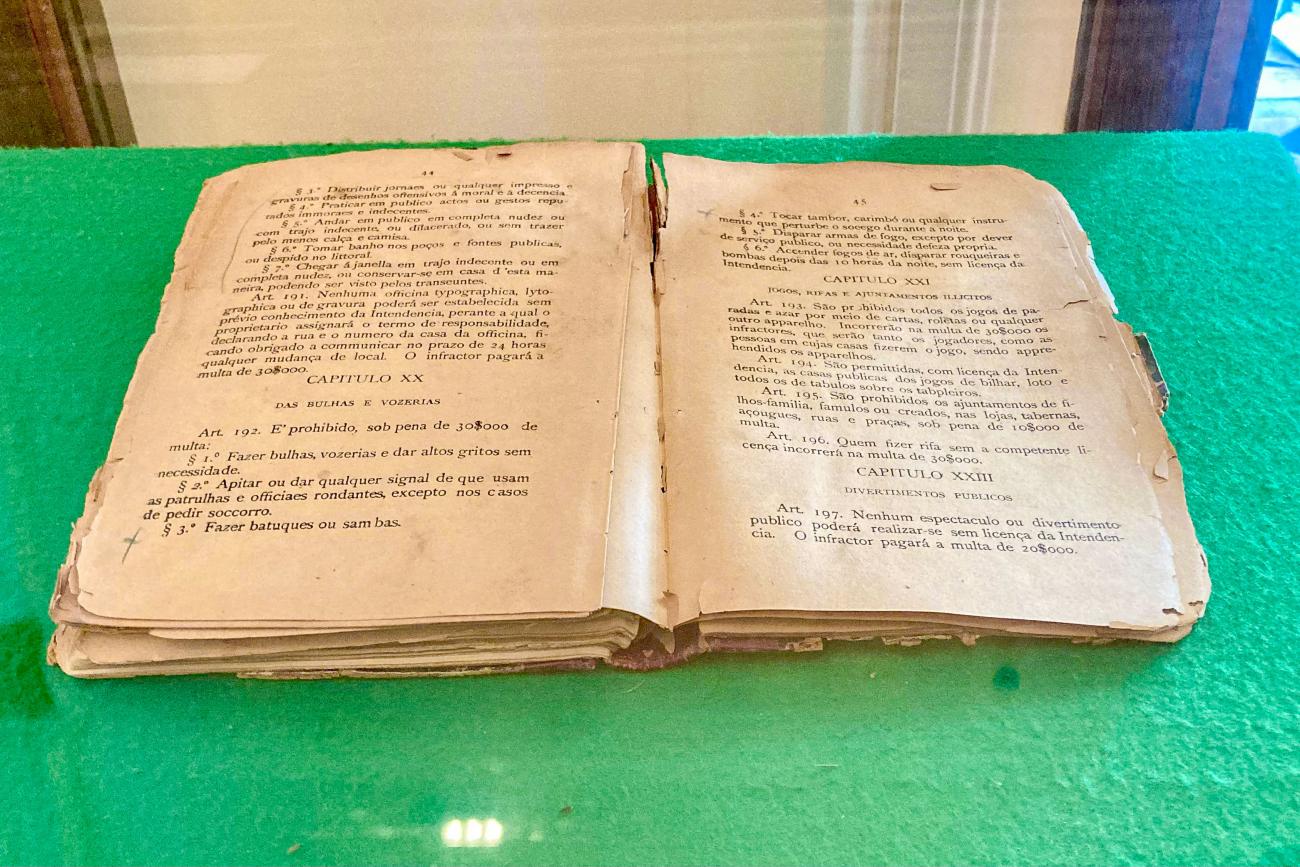 44
§ 3.º Distribuir jornaes ou qualquer impresso e
gravuras de desenhos offensivos á moral e á decencia
§ 4.º Praticar em publico actos ou gestos repu-
tados immoraes e indecentes.
§ 5.º Andar em publico em completa nudez ou
com trajo indecente, ou dilacerado, ou sem trazer
pelo menos calça e camisa.
§ 6.º Tomar banho nos poços e fontes publicas,
ou despido no littoral.
§ 7.º Chegar á janella em trajo indecente ou em
completa nudez, ou conservar-se em casa d'esta ma-
neira, podendo ser visto pelos transeuntes.
Art. 191. Nenhuma officina typographica, lyto-
graphica ou de gravura poderá ser estabelecida sem
prévio conhecimento da Intendencia, perante a qual o
proprietario assignará o termo de responsabilidade,
declarando a rua e o numero da casa da officina, fi-
cando obrigado a communicar no prazo de 24 horas
qualquer mudança de local. O infractor pagará a
multa de 30$000.
CAPITULO XX
DAS BULHAS E VOZERIAS
Art. 192. E' prohibido, sob pena de 30$000 de
multa:
§ 1.º Fazer bulhas, vozerias e dar altos gritos sem
necessidade.
§ 2.º Apitar ou dar qualquer signal de que usam
as patrulhas e officiaes rondantes, excepto nos casos
de pedir soccorro.
§ 3.º Fazer batuques ou sambas.
45
§ 4.º Tocar tambor, carimbó ou qualquer instru-
mento que perturbe o socego durante a noite.
§ 5.º Disparar armas de fogo, excepto por dever
de serviço publico, ou necessidade defeza propria.
§ 6.º Accender fogos de ar, disparar rouqueiras e
bombas depois das 10 horas da noite, sem licença da
Intendencia.
CAPITULO XXI
JOGOS, RIFAS E AJUNTAMENTOS ILLICITOS
Art. 193. São prohibidos todos os jogos de pa-
radas e azar por meio de cartas, roletas ou qualquer
outro apparelho. Incorrerão na multa de 30$000 os
infractores, que serão tanto os jogadores, como as
pessoas em cujas casas fizerem o jogo, sendo appre-
hendidos os apparelhos.
Art. 194. São permittidas, com licença da Inten-
dencia, as casas publicas dos jogos de bilhar, loto e
todos os de tabulos sobre os tabpleiros.
Art. 195. São prohibidos os ajuntamentos de fi-
lhos-familia, famulos ou creados, nas lojas, tabernas,
açougues, ruas e praças, sob pena de 10$000 de
multa.
Art. 196. Quem fizer rifa sem a competente li-
cença incorrerá na multa de 30$000.
CAPITULO XXIII
DIVERTIMENTOS PUBLICOS
Art. 197. Nenhum espectaculo ou divertimento
publico poderá realizar-se sem licença da Intenden-
cia. O infractor pagará a multa de 20$000.